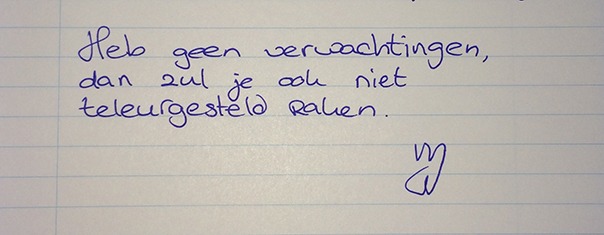 Heb geen verwachtingen,
dan zul je ook niet
teleurgesteld raken.